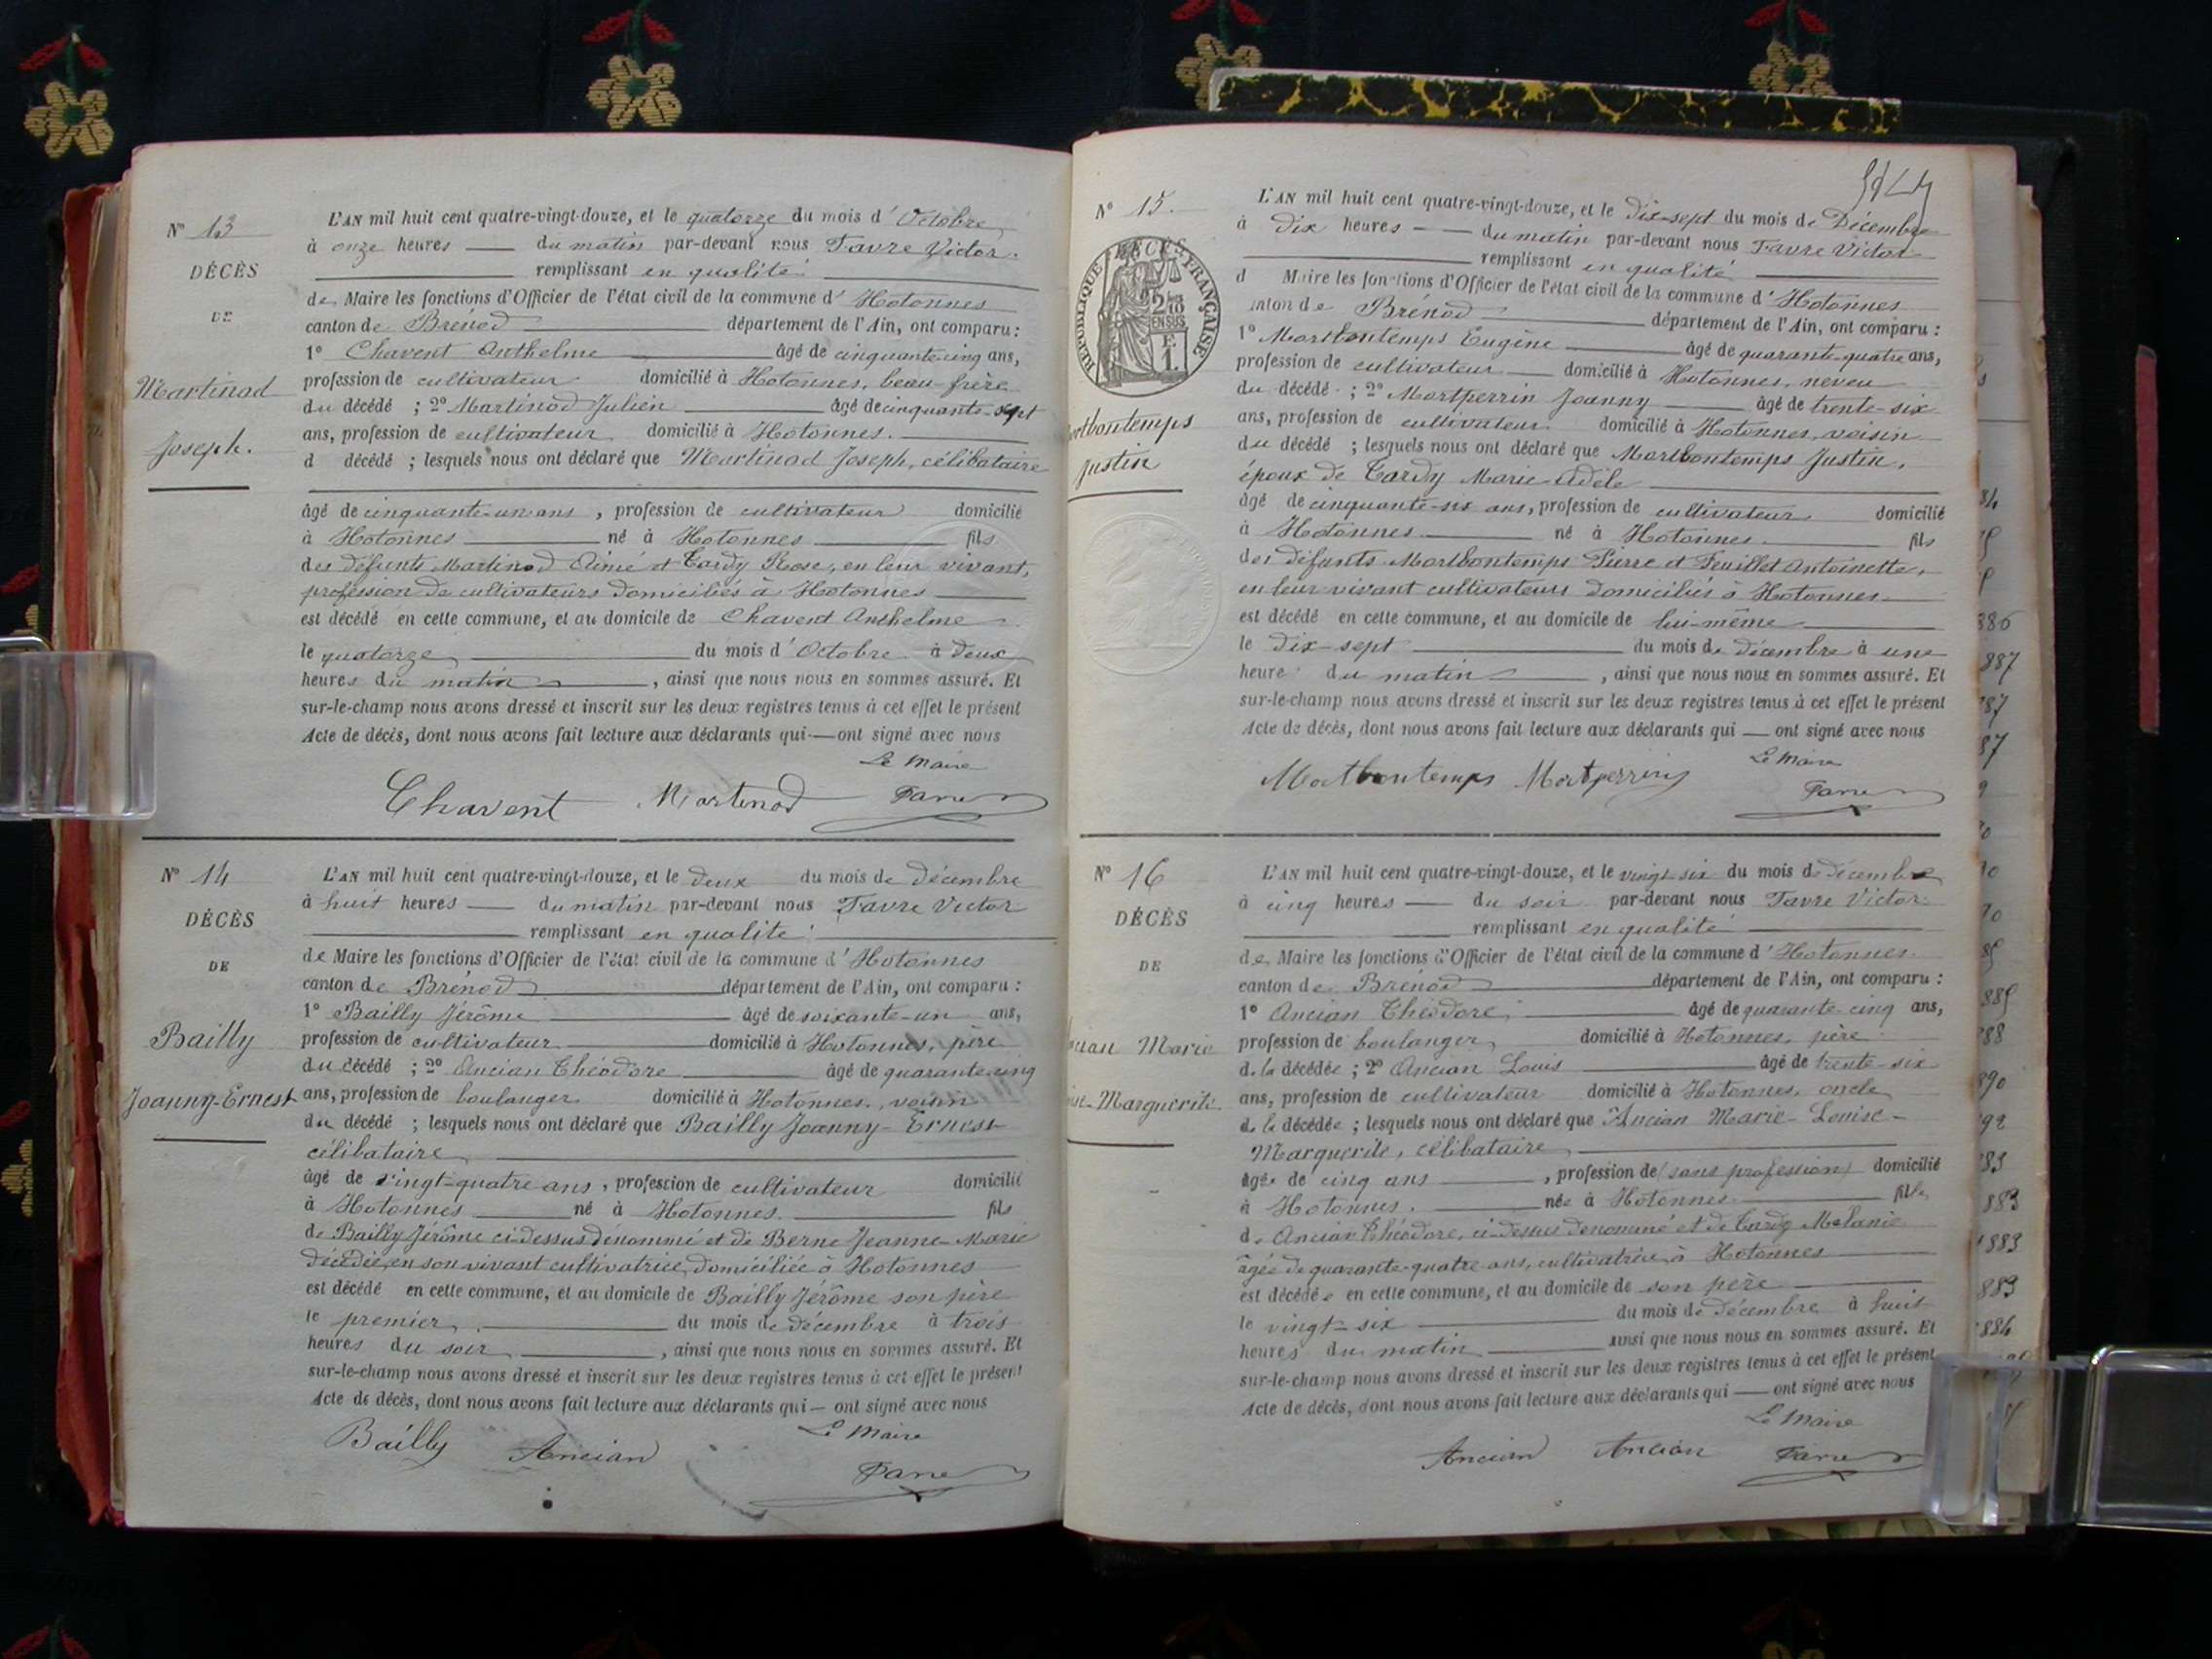 N° 13
DÉCÈS
DE
Martinod
Joseph.
L'AN mil huit cent quatre-vingt-douze, et le quatorze du mois d'Octobre
à onze heures du matin par-devant nous Favre Victor.
remplissant en qualité
de Maire les fonctions d'Officier de l'état civil de la commune d'Hotonnes
canton de Brénod département de l'Ain, ont comparu :
1° Chavent Anthelme âgé de cinquante-cinq ans,
profession de cultivateur domicilié à Hotonnes, beau-frère
du décédé ; 2° Martinod Julien âgé de cinquante-sept
ans, profession de cultivateur domicilié à Hotonnes.
d décédé ; lesquels nous ont déclaré que Martinod Joseph, célibataire
âgé de cinquante-un ans, profession de cultivateur domicilié
à Hotonnes né à Hotonnes fils
des défunts Martinod Aimé et Tardy Rose, en leur vivant,
profession de cultivateurs domiciliés à Hotonnes
est décédé en cette commune, et au domicile de Chavent Anthelme
le quatorze du mois d'Octobre à deux
heures du matin, ainsi que nous nous en sommes assuré. Et
sur-le-champ nous avons dressé et inscrit sur les deux registres tenus à cet effet le présent
Acte de décès, dont nous avons fait lecture aux déclarants qui — ont signé avec nous
Le Maire
Chavent Martinod Favre
N° 14
DÉCÈS
DE
Bailly
Joanny-Ernest
L'AN mil huit cent quatre-vingt-douze, et le deux du mois de décembre
à huit heures du matin par-devant nous Favre Victor
remplissant en qualité
de Maire les fonctions d'Officier de l'état civil de la commune d'Hotonnes
canton de Brénod département de l'Ain, ont comparu :
1° Bailly Jérôme âgé de soixante-un ans,
profession de cultivateur domicilié à Hotonnes, père
du décédé ; 2° Ancian Théodore âgé de quarante-cinq
ans, profession de boulanger domicilié à Hotonnes, voisin
du décédé ; lesquels nous ont déclaré que Bailly Joanny-Ernest
célibataire
âgé de vingt-quatre ans, profession de cultivateur domicilié
à Hotonnes né à Hotonnes. fils
de Bailly Jérôme ci-dessus dénommé et de Berne Jeanne-Marie
décédée, en son vivant cultivatrice, domiciliée à Hotonnes
est décédé en cette commune, et au domicile de Bailly Jérôme son père
le premier du mois de décembre à trois
heures du soir, ainsi que nous nous en sommes assuré. Et
sur-le-champ nous avons dressé et inscrit sur les deux registres tenus à cet effet le présent
Acte de décès, dont nous avons fait lecture aux déclarants qui — ont signé avec nous
Le Maire
Bailly Ancian Favre
N° 15.
DÉCÈS
RÉPUBLIQUE FRANÇAISE
2/10
EN SUS
F.
1.
ortbontemps
Justin
L'AN mil huit cent quatre-vingt-douze, et le dix-sept du mois de Décembre
à dix heures du matin par-devant nous Favre Victor
remplissant en qualité
d Maire les fonctions d'Officier de l'état civil de la commune d'Hotonnes
anton de Brénod département de l'Ain, ont comparu :
1° Mortbontemps Eugène âgé de quarante-quatre ans,
profession de cultivateur domicilié à Hotonnes, neveu
du décédé ; 2° Mortperrin Joanny âgé de trente-six
ans, profession de cultivateur domicilié à Hotonnes, voisin
du décédé ; lesquels nous ont déclaré que Mortbontemps Justin,
époux de Tardy Marie-Adèle
âgé de cinquante-six ans, profession de cultivateur domicilié
à Hotonnes né à Hotonnes. fils
des défunts Mortbontemps Pierre et Feuillet Antoinette,
en leur vivant cultivateurs domiciliés à Hotonnes
est décédé en cette commune, et au domicile de lui-même
le dix-sept du mois de décembre à une
heure du matin, ainsi que nous nous en sommes assuré. Et
sur-le-champ nous avons dressé et inscrit sur les deux registres tenus à cet effet le présent
Acte de décès, dont nous avons fait lecture aux déclarants qui — ont signé avec nous
Le Maire
Mortbontemps Mortperrin Favre
N° 16
DÉCÈS
DE
cian Marie
ise-Marguerite.
L'AN mil huit cent quatre-vingt-douze, et le vingt-six du mois de décembre
à cinq heures du soir par-devant nous Favre Victor
remplissant en qualité
de Maire les fonctions d'Officier de l'état civil de la commune d'Hotonnes.
canton de Brénod département de l'Ain, ont comparu :
1° Ancian Théodore, âgé de quarante-cinq ans,
profession de boulanger domicilié à Hotonnes, père
de la décédée ; 2° Ancian Louis âgé de trente-six
ans, profession de cultivateur domicilié à Hotonnes, oncle
de la décédée ; lesquels nous ont déclaré que Ancian Marie-Louise-
Marguerite, célibataire
âgée de cinq ans, profession de (sans profession) domicilié
à Hotonnes. née à Hotonnes fille
de Ancian Théodore, ci-dessus dénommé et de Tardy Mélanie
âgée de quarante-quatre ans, cultivatrice à Hotonnes
est décédée en cette commune, et au domicile de son père
le vingt-six du mois de décembre à huit
heures du matin ainsi que nous nous en sommes assuré. Et
sur-le-champ nous avons dressé et inscrit sur les deux registres tenus à cet effet le présent
Acte de décès, dont nous avons fait lecture aux déclarants qui — ont signé avec nous
Le Maire
Ancian Ancian Favre
886
887
87
87
889
888
890
92
83
883
1883
883
1884